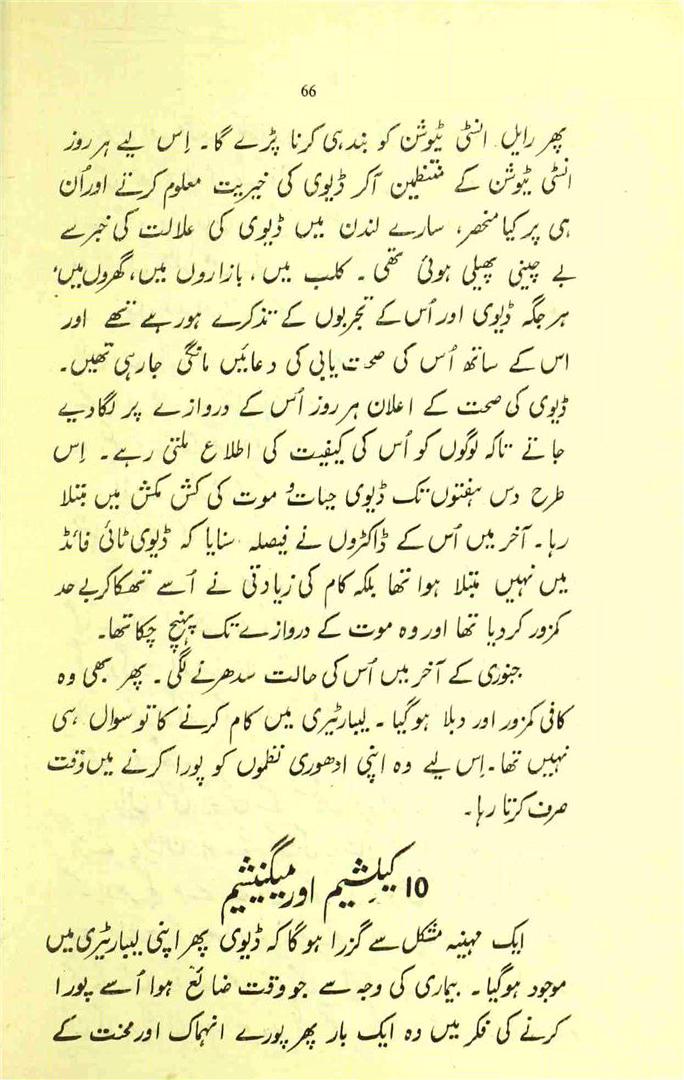 66
پھر رایل انسٹی ٹیوشن کو بند ہی کرنا پڑے گا۔ اِس لیے ہر روز
انسٹی ٹیوشن کے منتظمین آکر ڈیوی کی خیریت معلوم کرتے اور اُن
ہی پر کیا منحصر، سارے لندن میں ڈیوی کی علالت کی خبر سے
بے چینی پھیلی ہوئی تھی۔ کلب میں، بازاروں میں، گھروں میں،
ہر جگہ ڈیوی اور اُس کے تجربوں کے تذکرے ہو رہے تھے اور
اس کے ساتھ اُس کی صحت یابی کی دعائیں مانگی جا رہی تھیں۔
ڈیوی کی صحت کے اعلان ہر روز اُس کے دروازے پر لگا دیے
جاتے تاکہ لوگوں کو اُس کی کیفیت کی اطلاع ملتی رہے۔ اِس
طرح دس ہفتوں تک ڈیوی حیات و موت کی کش مکش میں مبتلا
رہا۔ آخر میں اُس کے ڈاکٹروں نے فیصلہ سنایا کہ ڈیوی ٹائی فائڈ
میں نہیں مبتلا ہوا تھا بلکہ کام کی زیادتی نے اُسے تھکا کر بے حد
کمزور کر دیا تھا اور وہ موت کے دروازے تک پہنچ چکا تھا۔
جنوری کے آخر میں اُس کی حالت سدھرنے لگی۔ پھر بھی وہ
کافی کمزور اور دبلا ہو گیا۔ لیبارٹیری میں کام کرنے کا تو سوال ہی
نہیں تھا۔ اِس لیے وہ اپنی ادھوری نظموں کو پورا کرنے میں وقت
صرف کرتا رہا۔
10 کیلشیم اور میگنیشیم
ایک مہینہ مشکل سے گزرا ہو گا کہ ڈیوی پھر اپنی لیبارٹیری میں
موجود ہو گیا۔ بیماری کی وجہ سے جو وقت ضائع ہوا اُسے پورا
کرنے کی فکر میں وہ ایک بار پھر پورے انہماک اور محنت کے